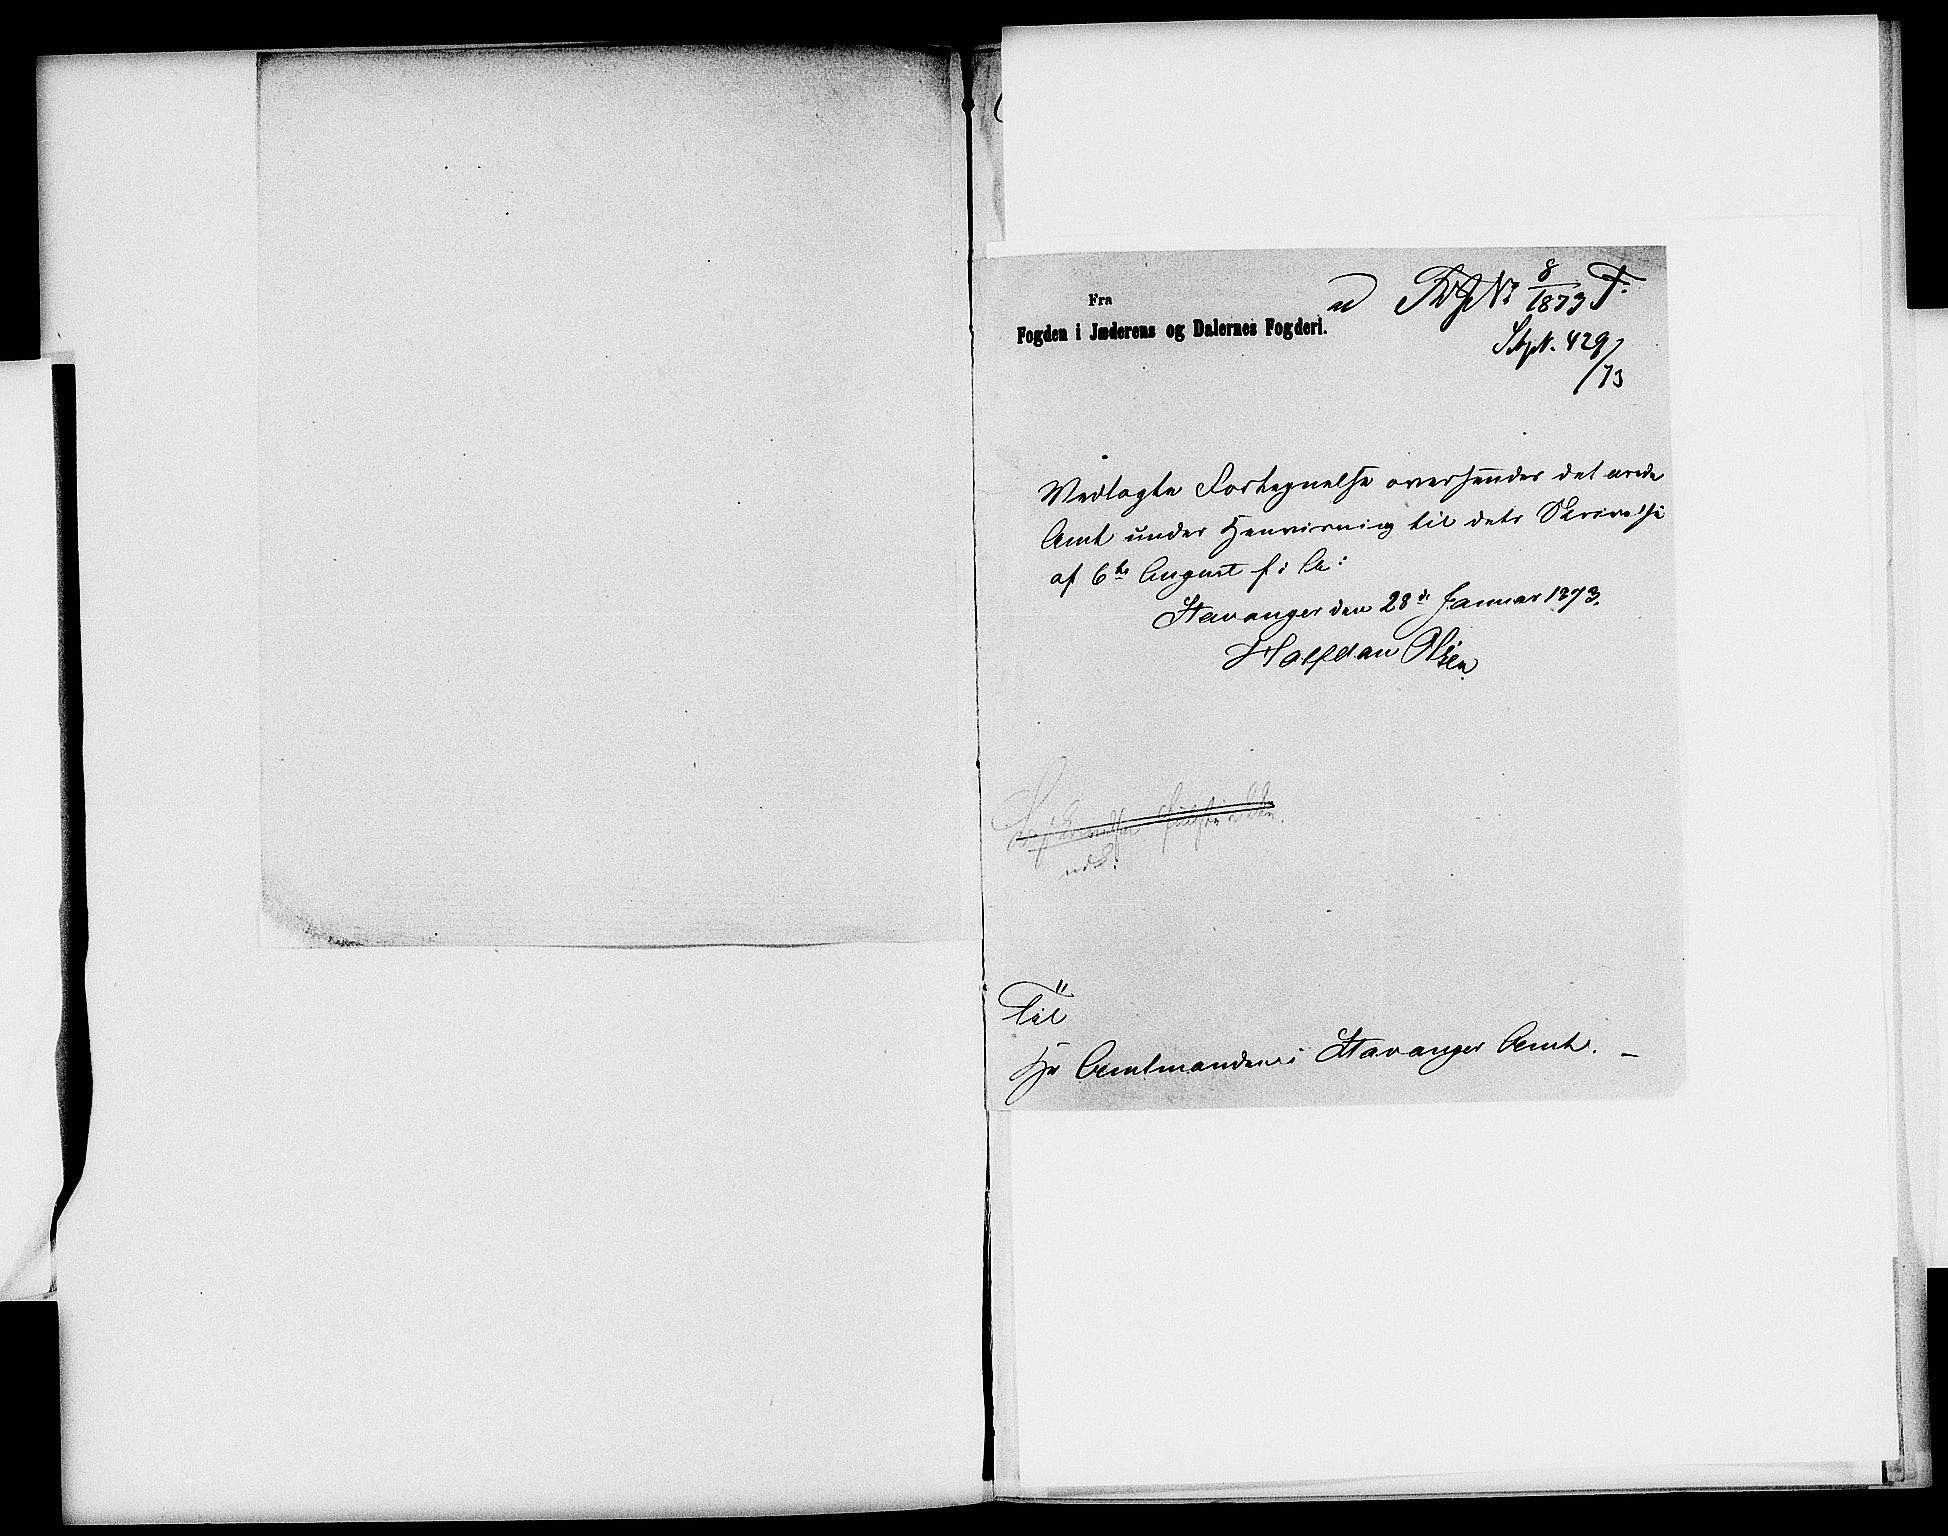 Fra
Fogden i Jæderens og Dalernes Fogderi.
ad № 8/1873 F.
429/73
Vedlagte Fortegnelse oversendes det ærede
Amt under Henvisning til dets Skrivelse
af 6te August f: A:
Stavanger den 28de Januar 1873.
Halfdan Olsen
Til
Hr Amtmanden i Stavanger Amt. –